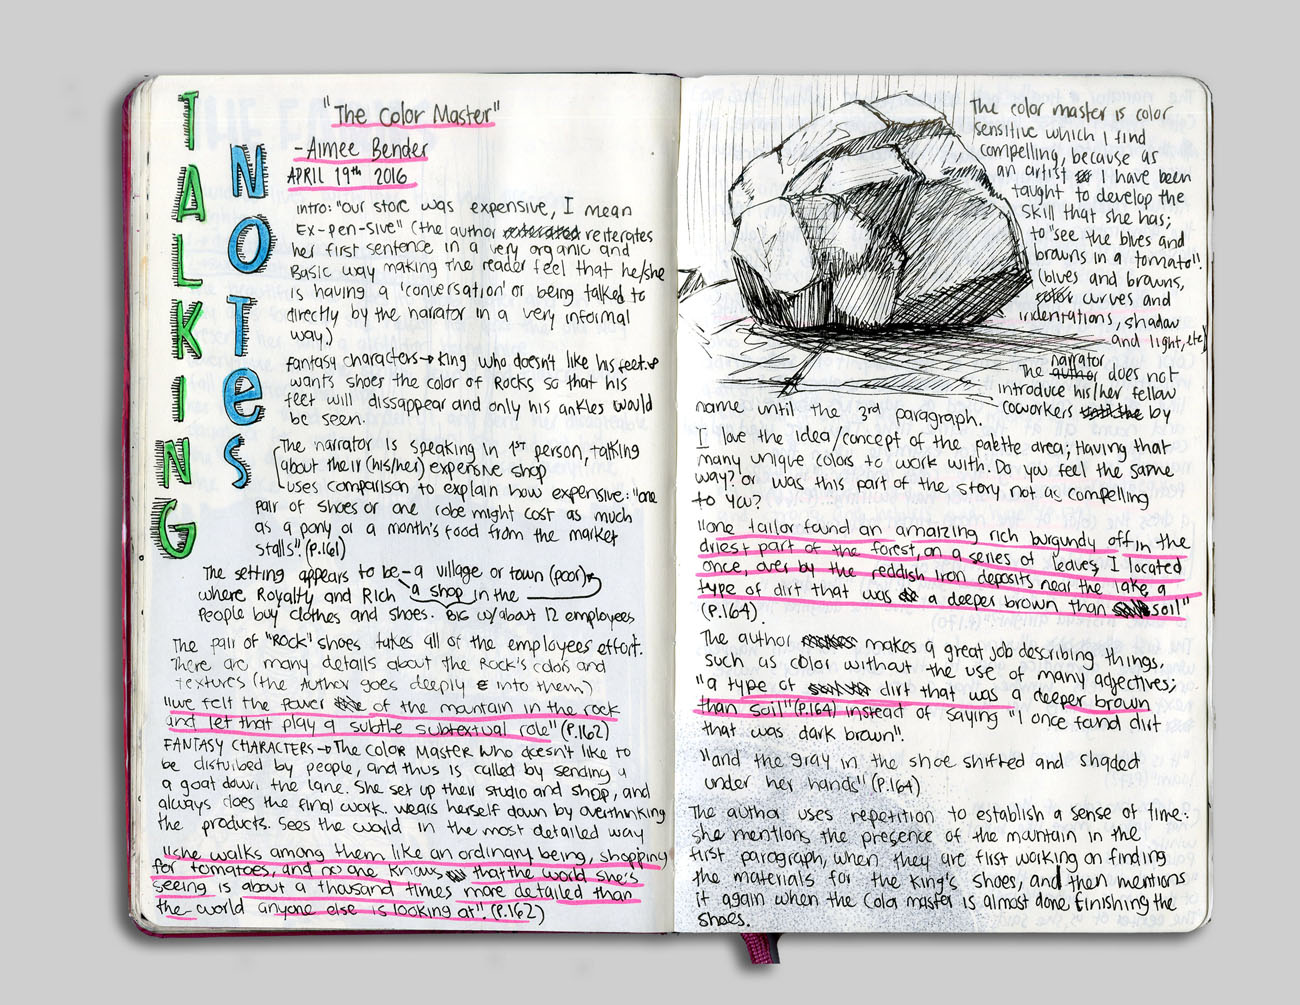 TALKING
NOTES
"The Color Master"
-Aimee Bender
APRIL 19th 2016
intro: "our store was expensive, I mean
Ex-pen-sive" (the author reiterates
her first sentence in a very organic and
Basic way making the reader feel that he/she
is having a 'conversation' or being talked to
directly by the narrator in a very informal
way.)
fantasy characters→King who doesn't like his feet &
wants shoes the color of Rocks so that his
feet will dissappear and only his ankles would
be seen.
The narrator is speaking in 1st person, talking
about their (his/her) expensive shop
uses comparison to explain how expensive: "one
pair of shoes or one robe might cost as much
as a pony or a month's food from the market
stalls". (P.161)
The setting appears to be - a village or town (poor)
where Royalty and Rich a shop in the
People buy clothes and shoes. BIG w/about 12 employees
The pair of "Rock" shoes takes all of the employees effort.
There are many details about the Rock's colors and
textures (the Author goes deeply into them)
"we felt the power of the mantain in the rock
and let that play a subtle subtextual role" (P.162)
FANTASY CHARACTERS→The COLOR MASTER who doesn't like to
be distuibed by people, and thus is called by sending a
a goat down the lane. She set up their studio and shop, and
always does the final work. wears herself down by overthinking
the products. Sees the world in the most detailed way
"she walks among them like an ordinary being, shopping
for tomatoes, and no one knows that the world she's
seeing is about a thousand times more detailed than
the world anyone else is looking at". (P.162)
The color master is color
sensitive which I find
compelling, because as
an artist I have been
taught to develop the
skill that she has;
to "see the blues and
browns in a tomato".
(blues and browns,
curves and
indentations, shadow
and light, etc)
narrator
The does not
introduce his/her fellow
coworkers by
name until the 3rd paragraph.
I love the idea/concept of the palette area; Having that
many unique colors to work with. Do you feel the same
way? or was this part of the story not as compelling
to you?
"one tailor found an amaizing rich burgundy off in the
driest part of the forest, on a series of leaves; I located
once, over by the reddish iron deposits near the lake, a
type of dirt that was a deeper brown than soil"
(P.164).
The author makes a great job describing things,
such as color without the use of many adjectives;
"a type of dirt that was a deeper brown
than soil" (P.164) instead of saying "I once found dirt
that was dark brown".
"and the gray in the shoe shifted and shaded
under her hands" (P.164)
The author uses repetition to establish a sense of time:
she mentions the presence of the mountain in the
first paragraph, when they are first working on finding
the materials for the King's shoes, and then mentions
it again when the Color master is almost done finishing the
shoes.